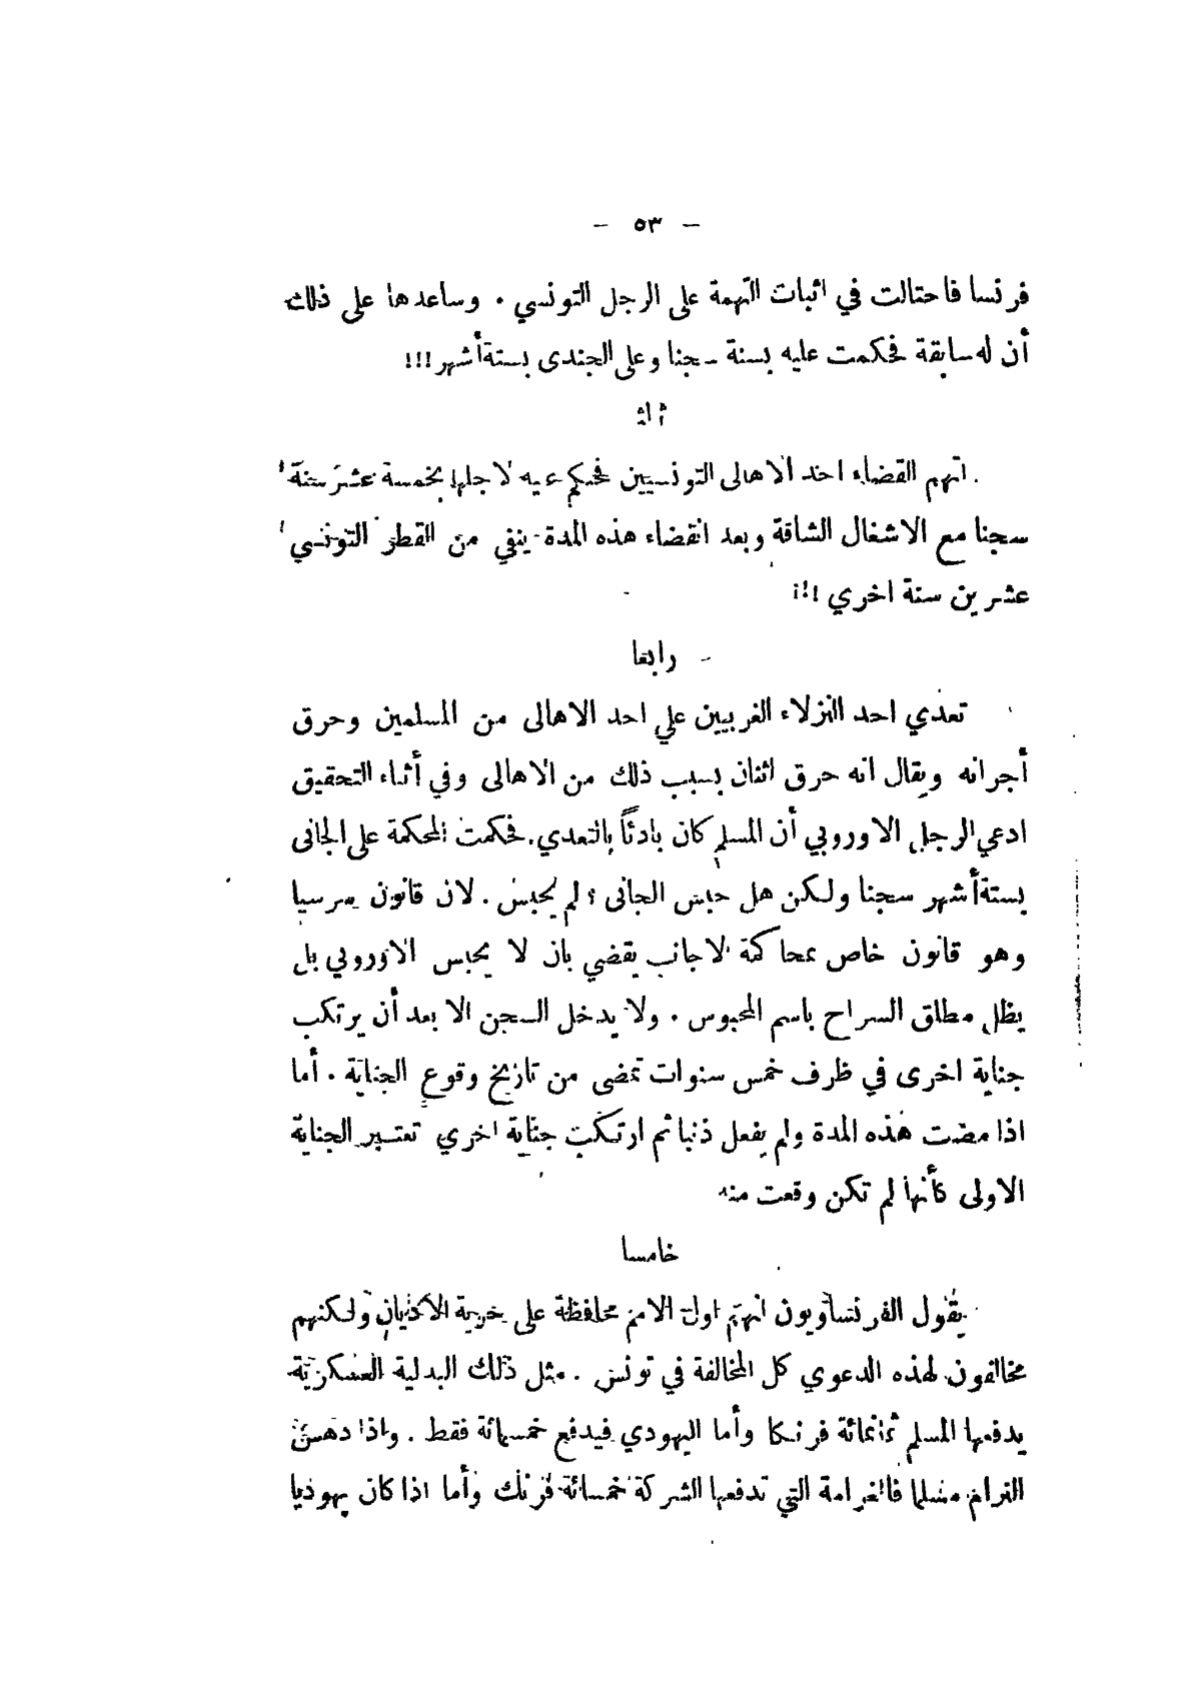 – ٥٣ –
فرنسا فاحتالت في اثبات التهمة على الرجل التونسي . وساعدها على ذلك
أن له سابقة فحكمت عليه بسنة سجنا وعلى الجندى بستة أشهر !!!
ثالثا
اتهم القضاء احد الاهالى التونسيين فحكم عليه لاجلها بخمسة عشر سنة
سجنا مع الاشغال الشاقة وبعد انقضاء هذه المدة ينفي من القطر التونسي
عشرين سنة اخري !!!
رابعا
تعدي احد النزلاء الغربيين علي احد الاهالى من المسلمين وحرق
أجرانه ويقال انه حرق اثنان بسبب ذلك من الاهالى وفي أثناء التحقيق
ادعي الرجل الاوروبي أن المسلم كان بادئاً بالتعدي . فحكمت المحكمة على الجانى
بستة أشهر سجنا ولكن هل حبس الجانى ؟ لم يحبس . لان قانون مرسيا
وهو قانون خاص بمحاكمة الاجانب يقضي بان لا يحبس الاوروبي بل
يظل مطلق السراح باسم المحبوس . ولا يدخل السجن الا بعد أن يرتكب
جناية اخرى في ظرف خمس سنوات تمضى من تاريخ وقوع الجناية . أما
اذا مضت هذه المدة ولم يفعل ذنبا ثم ارتكب جناية اخري تعتبر الجناية
الاولى كأنها لم تكن وقعت منه
خامسا
يقول الفرنساويون انهم اول الامم محافظة على حرية الاديان ولكنهم
مخالفون لهذه الدعوي كل المخالفة في تونس . مثل ذلك البدلية العسكرية
يدفعها المسلم ثمانمائة فرنكا وأما اليهودي فيدفع خمسمائة فقط . واذا دهس
الترام مسلما فالغرامة التي تدفعها الشركة خمسمائة فرنك وأما اذا كان يهوديا